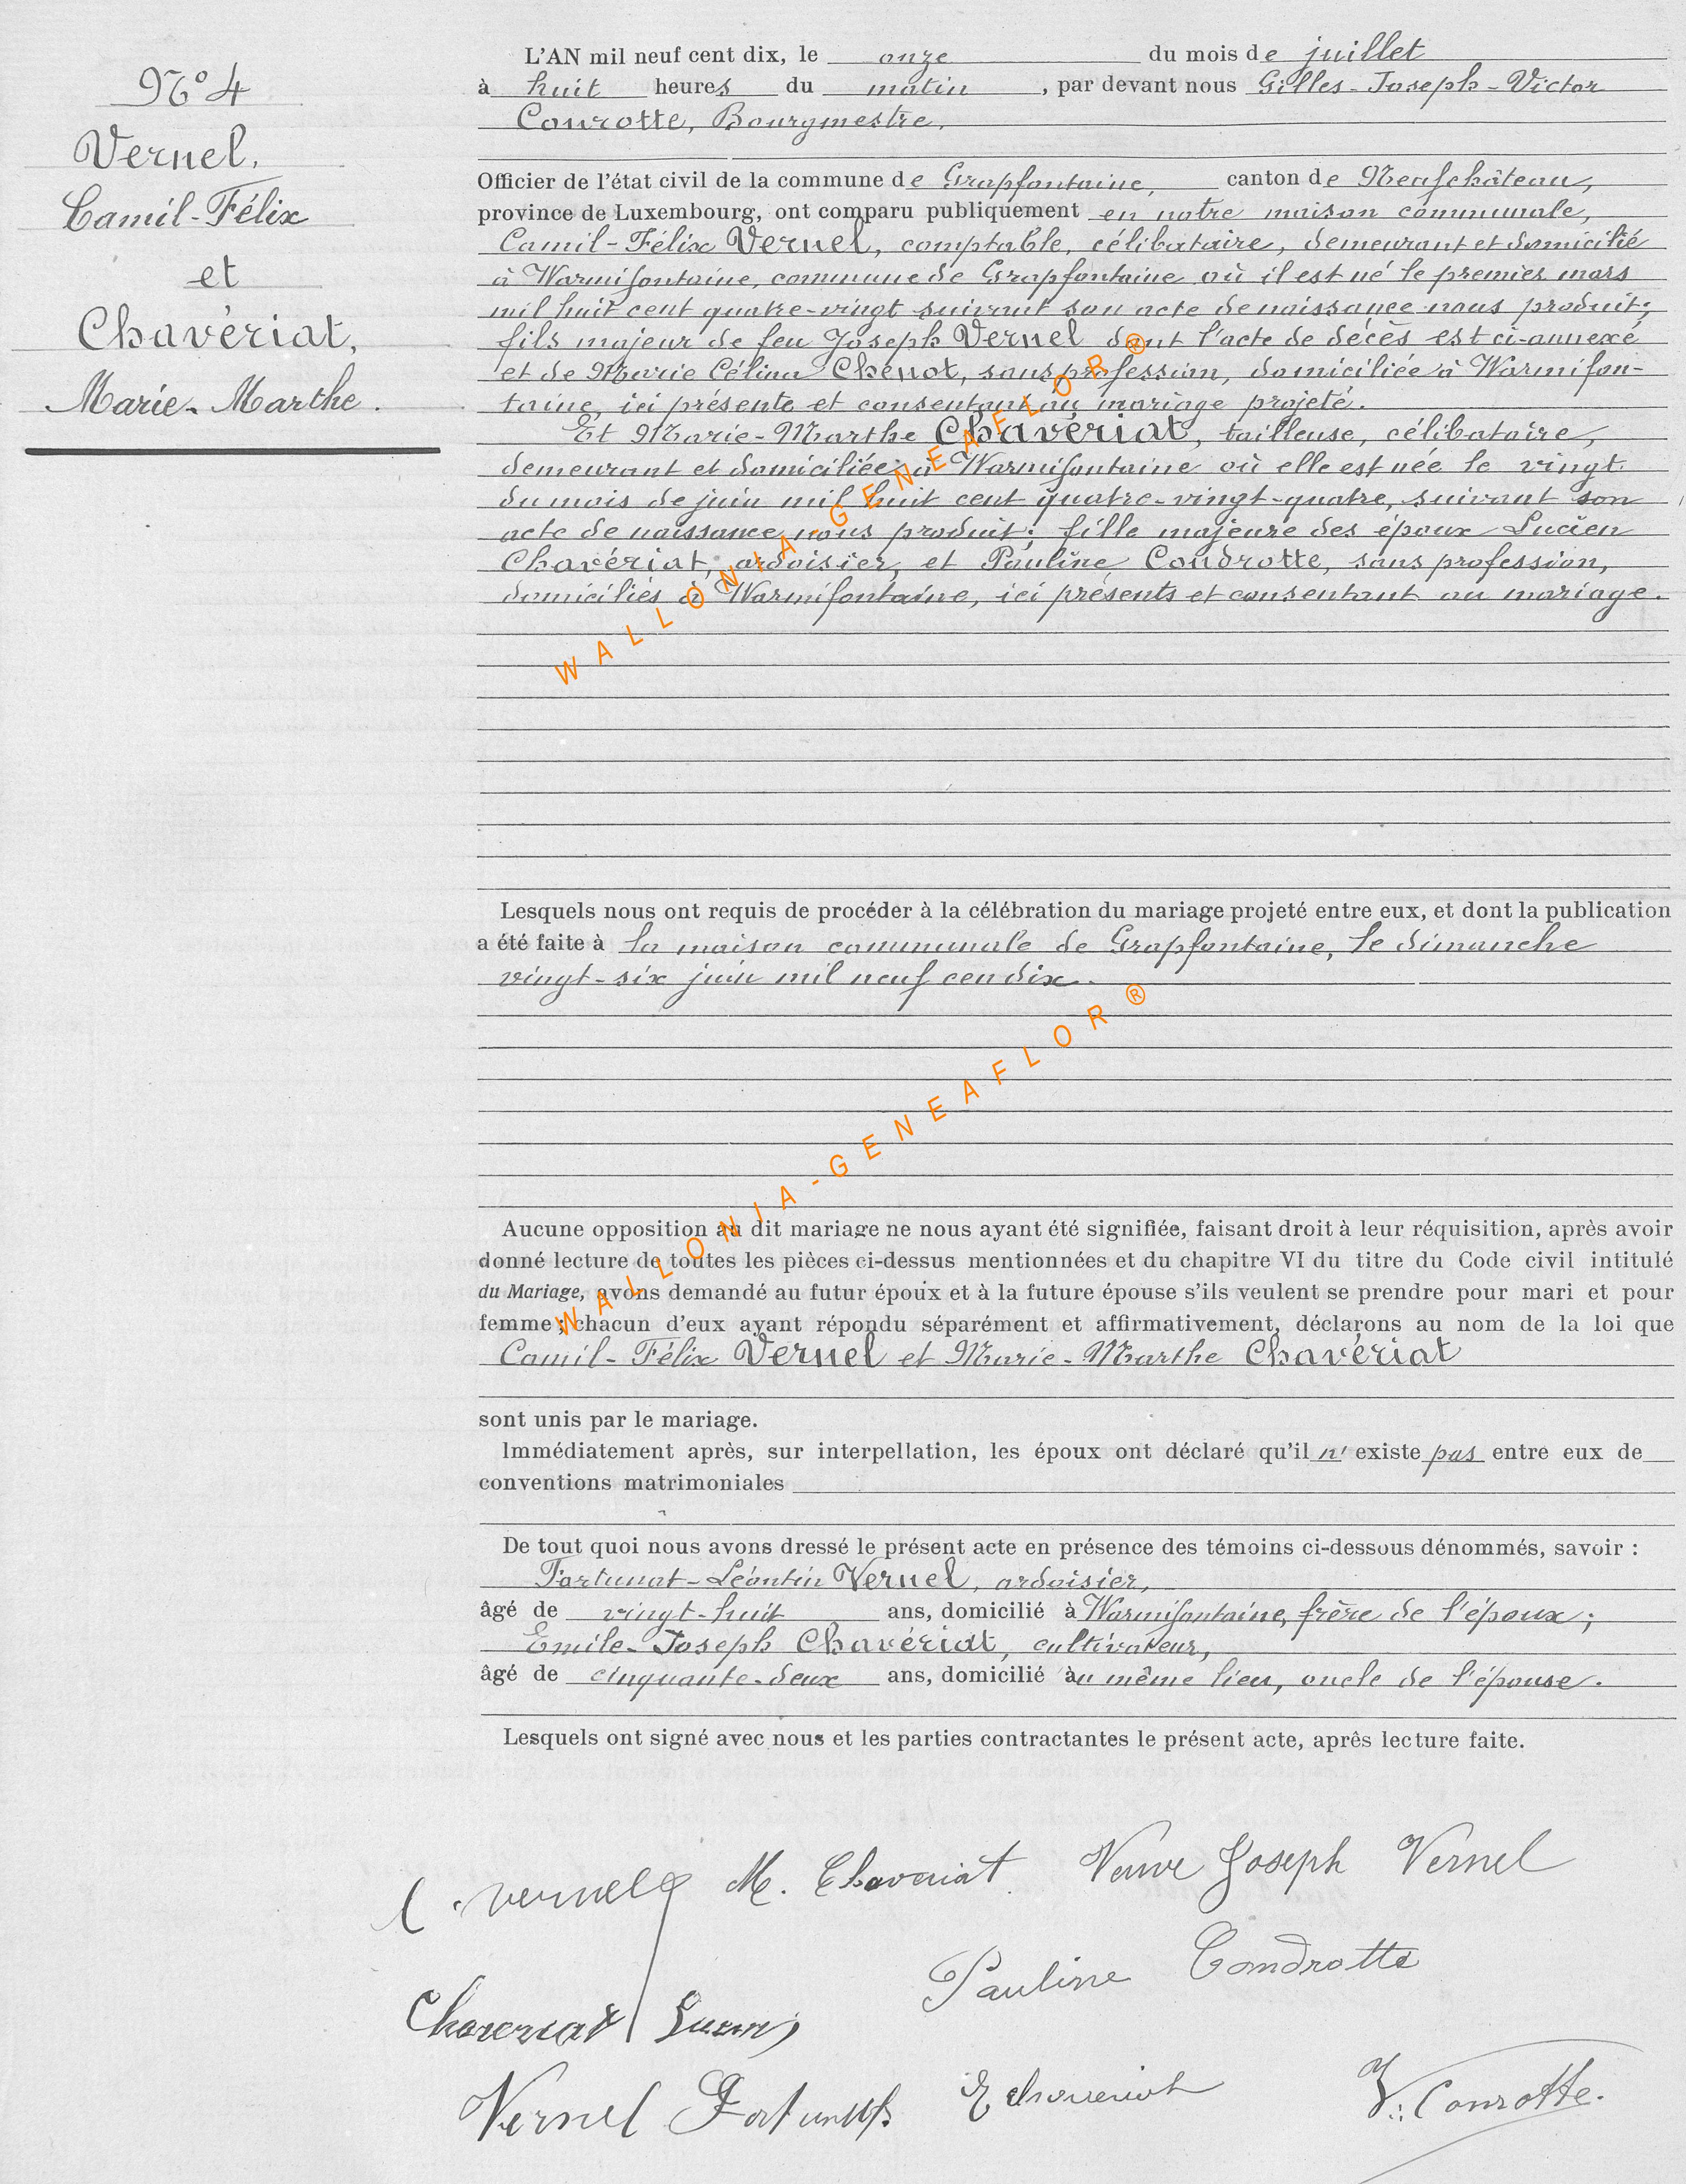 N° 4
Vernel,
Camil-Félix
et
Chavériat,
Marie-Marthe.
L'AN mil neuf cent dix, le onze du mois de juillet
à huit heures du matin, par devant nous Gilles-Joseph-Victor
Conrotte, Bourgmestre,
Officier de l'état civil de la commune de Grapfontaine, canton de Neufchâteau,
province de Luxembourg, ont comparu publiquement en notre maison communale,
Camil-Félix Vernel, comptable, célibataire, demeurant et domicilié
à Warmifontaine, commune de Grapfontaine où il est né le premier mars
mil huit cent quatre-vingt suivant son acte de naissance nous produit;
fils majeur de feu Joseph Vernel dont l'acte de décès est ci-annexé
et de Marie Célina Chenot, sans profession, domiciliée à Warmifon-
taine, ici présente et consentant au mariage projeté.
Et Marie-Marthe Chavériat, tailleuse, célibataire,
demeurant et domiciliée à Warmifontaine où elle est née le vingt
du mois de juin mil huit cent quatre-vingt-quatre, suivant son
acte de naissance nous produit; fille majeure des époux Lucien
Chavériat, ardoisier, et Pauline Condrotte, sans profession,
domiciliés à Warmifontaine, ici présents et consentant au mariage.
WALLONIA-GENEAFLOR®
Lesquels nous ont requis de procéder à la célébration du mariage projeté entre eux, et dont la publication
a été faite à la maison communale de Grapfontaine, le dimanche
vingt-six juin mil neuf cen dix.
WALLONIA-GENEAFLOR®
Aucune opposition au dit mariage ne nous ayant été signifiée, faisant droit à leur réquisition, après avoir
donné lecture de toutes les pièces ci-dessus mentionnées et du chapitre VI du titre du Code civil intitulé
du Mariage, avons demandé au futur époux et à la future épouse s'ils veulent se prendre pour mari et pour
femme; chacun d'eux ayant répondu séparément et affirmativement, déclarons au nom de la loi que
Camil-Félix Vernel et Marie-Marthe Chavériat
sont unis par le mariage.
Immédiatement après, sur interpellation, les époux ont déclaré qu'il n' existe pas entre eux de
conventions matrimoniales
De tout quoi nous avons dressé le présent acte en présence des témoins ci-dessous dénommés, savoir :
Fortunat-Léontin Vernel, ardoisier,
âgé de vingt-huit ans, domicilié à Warmifontaine, frère de l'époux;
Emile-Joseph Chavériat, cultivateur,
âgé de cinquante-deux ans, domicilié au même lieu, oncle de l'épouse.
Lesquels ont signé avec nous et les parties contractantes le présent acte, après lecture faite.
C. Vernel M. Chavériat Veuve Joseph Vernel
Pauline Condrotte
Chavériat Lucien
Vernel Fortunat E Chavériat V. Conrotte.